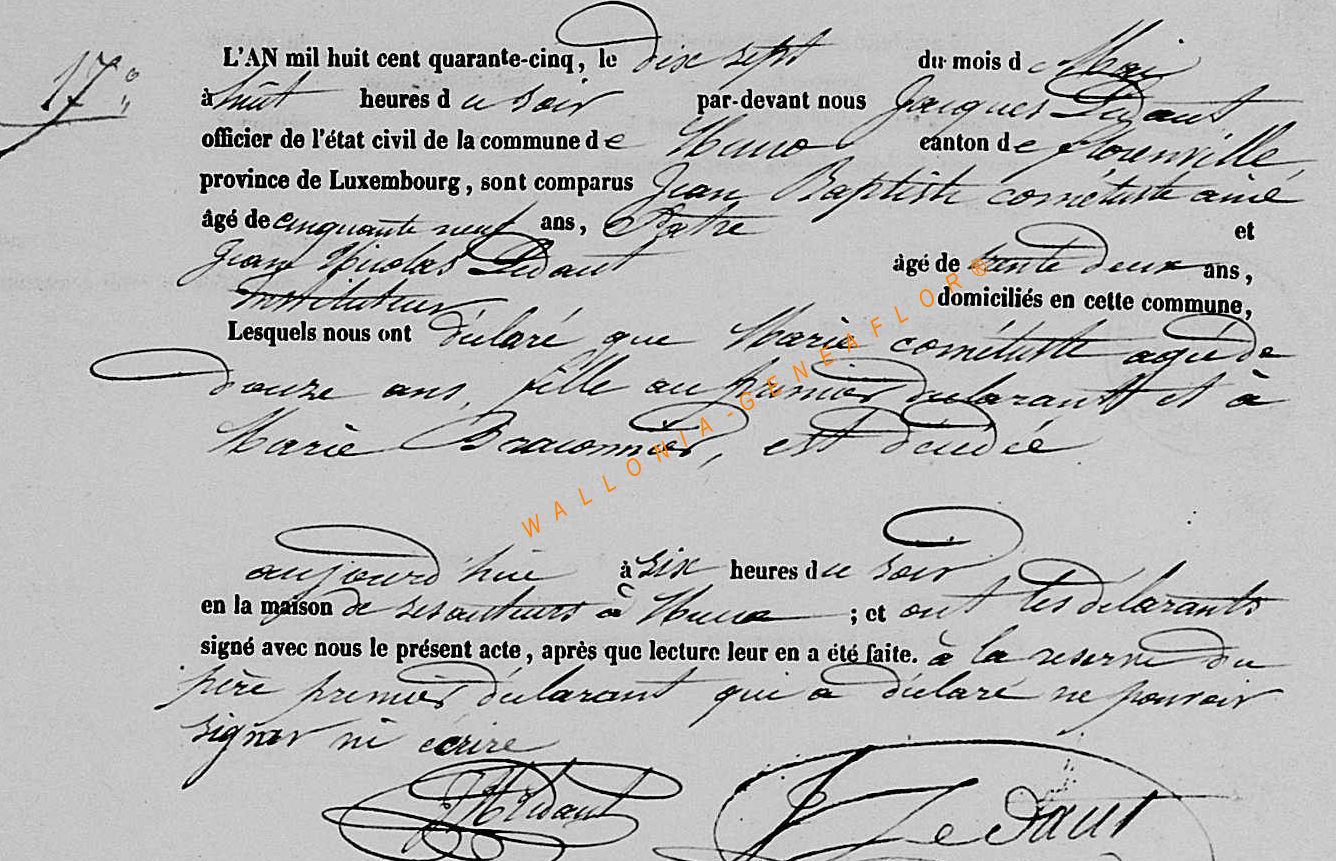 17°
L'AN mil huit cent quarante-cinq, le dix sept du mois de Mai
à huit heures du soir par-devant nous Jacques Ledant,
officier de l'état civil de la commune de Muno canton de florenville,
province de Luxembourg, sont comparus Jean Baptiste cométuste ainé
âgé de cinquante neuf ans, Patre et
Jean Nicolas Ledant âgé de trente deux ans,
Instituteur, domiciliés en cette commune,
Lesquels nous ont déclaré que Marie cométuste agée de
douze ans, fille au premier déclarant et à
Marie Braconnier, est décédée
aujourd'hui à six heures du soir
en la maison de ses auteurs à Muno ; et ont les déclarants
signé avec nous le présent acte, après que lecture leur en a été faite. à la reserve du
père premier déclarant qui a déclaré ne pouvoir
signer ni écrire
Ledant
Ledant
WALLONIA-GENEAFLOR®